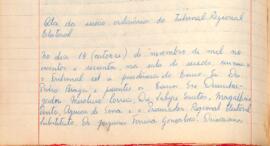 Ata da sessão ordinária do Tribunal Regional
Eleitoral
No dia 14 (catorze) de novembro de mil no-
vecentos e sessenta, na sala de sessões, reuniu-
o Tribunal sob a presidência do Exmo. Sr. Des.
Pedro Braga e presentes os Exmos. Srs. Desembar-
gadores Correia, Felipe Santos, Magalhães
Pinto, de e o Procurador Regional Eleitoral
Substituto, Dr. Joaquim Ferreira Gonçalves.